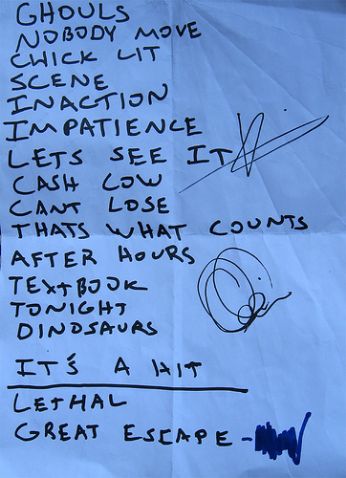 GHOULS
NOBODY MOVE
CHICK LIT
SCENE
INACTION
IMPATIENCE
LETS SEE IT
CASH COW
CANT LOSE
THATS WHAT COUNTS
AFTER HOURS
TEXTBOOK
TONIGHT
DINOSAURS
IT'S A HIT
LETHAL
GREAT ESCAPE -